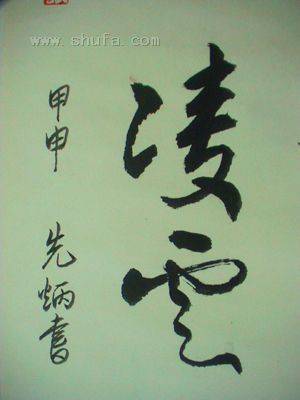 www.shufa.com
凌雲
甲申 先炳書